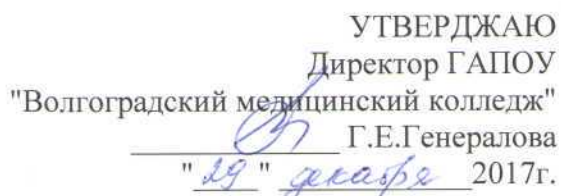 УТВЕРДЖАЮ
Директор ГАПОУ
"Волгоградский медицинский колледж"
Г.Е.Генералова
"29" декабря 2017г.